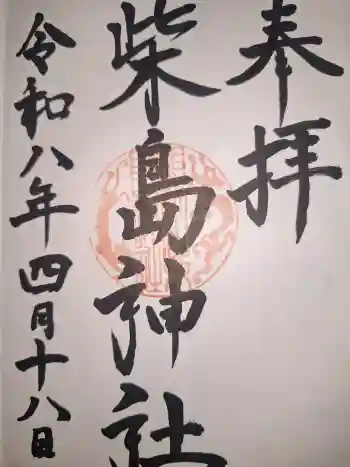 奉拝
柴島神社
令和八年四月十八日